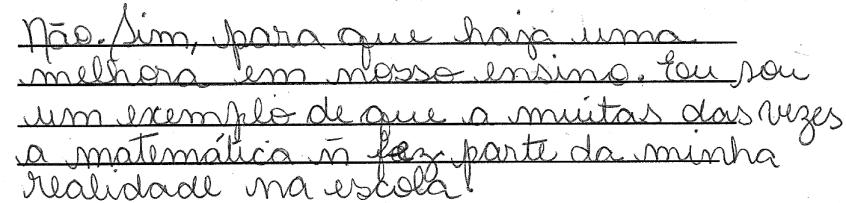 Não. Sim, para que haja uma
melhora em nosso ensino. Eu sou
um exemplo de que a muitas das vezes
a matemática ñ fez parte da minha
realidade na escola.